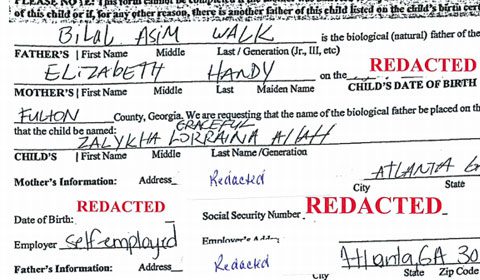 PLEASE NOTE: This form cannot be completed
of this child or if, for any other reason, there is another father of this child listed on the child's birth cert
BILAL ASIM WALK is the biological (natural) father of the
FATHER'S | First Name Middle Last / Generation (Jr., III, etc)
ELIZABETH HANDY on the REDACTED
MOTHER'S | First Name Middle Last Maiden Name CHILD'S DATE OF BIRTH
FULTON County, Georgia. We are requesting that the name of the biological father be placed on
GRACEFUL
that the child be named: ZALYKHA LORRAINA ALLAH
CHILD'S | First Name Middle Last Name /Generation
Mother's Information: Address Redacted ATLANTA
City State
Date of Birth: REDACTED Social Security Number REDACTED
Employer self employed Employer's
Father's Information: Address Redacted Atlanta GA 30
City State Zip Code